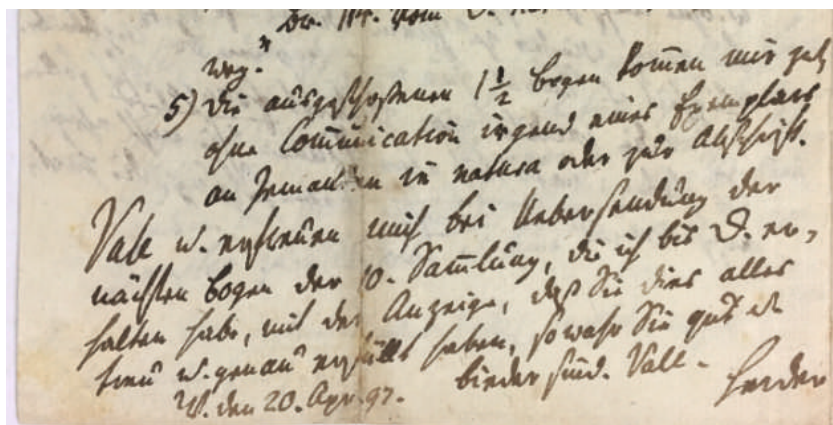 Nr. 114. vom
weg."
5) Die ausgeschoßenen 1 1/2 Bogen kom̄en mir zu,
ohne Com̄unication irgend eines Exemplars
an Jemanden in natura oder zur Abschrift.
Vale u. erfreuen mich bei Uebersendung der
nächsten Bogen der 10. Sam̄lung, die ich bis D. er-
halten habe, mit der Anzeige, daß Sie dies alles
treu u. genau erfüllt haben, so wahr Sie gut u.
bieder sind. Vale.
W. den 20. Apr. 97.
Herder